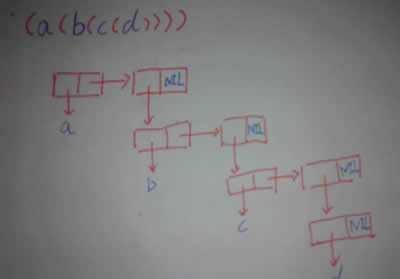 (a(b(c(d))))
NIL
a
NIL
b
NIL
c
NIL
d